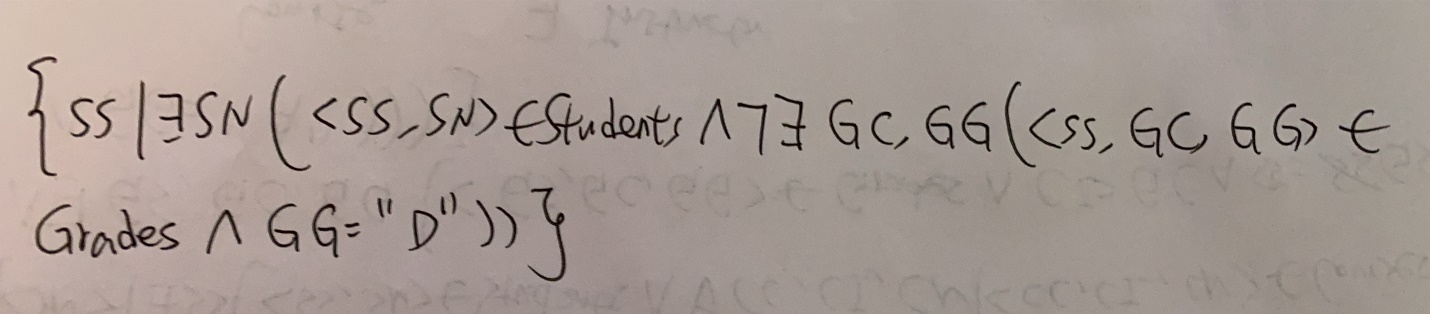 {SS|∃SN(<SS,SN>∈Students ∧¬∃ GC, GG(<SS, GC, GG> ∈
Grades ∧ GG="D"))}